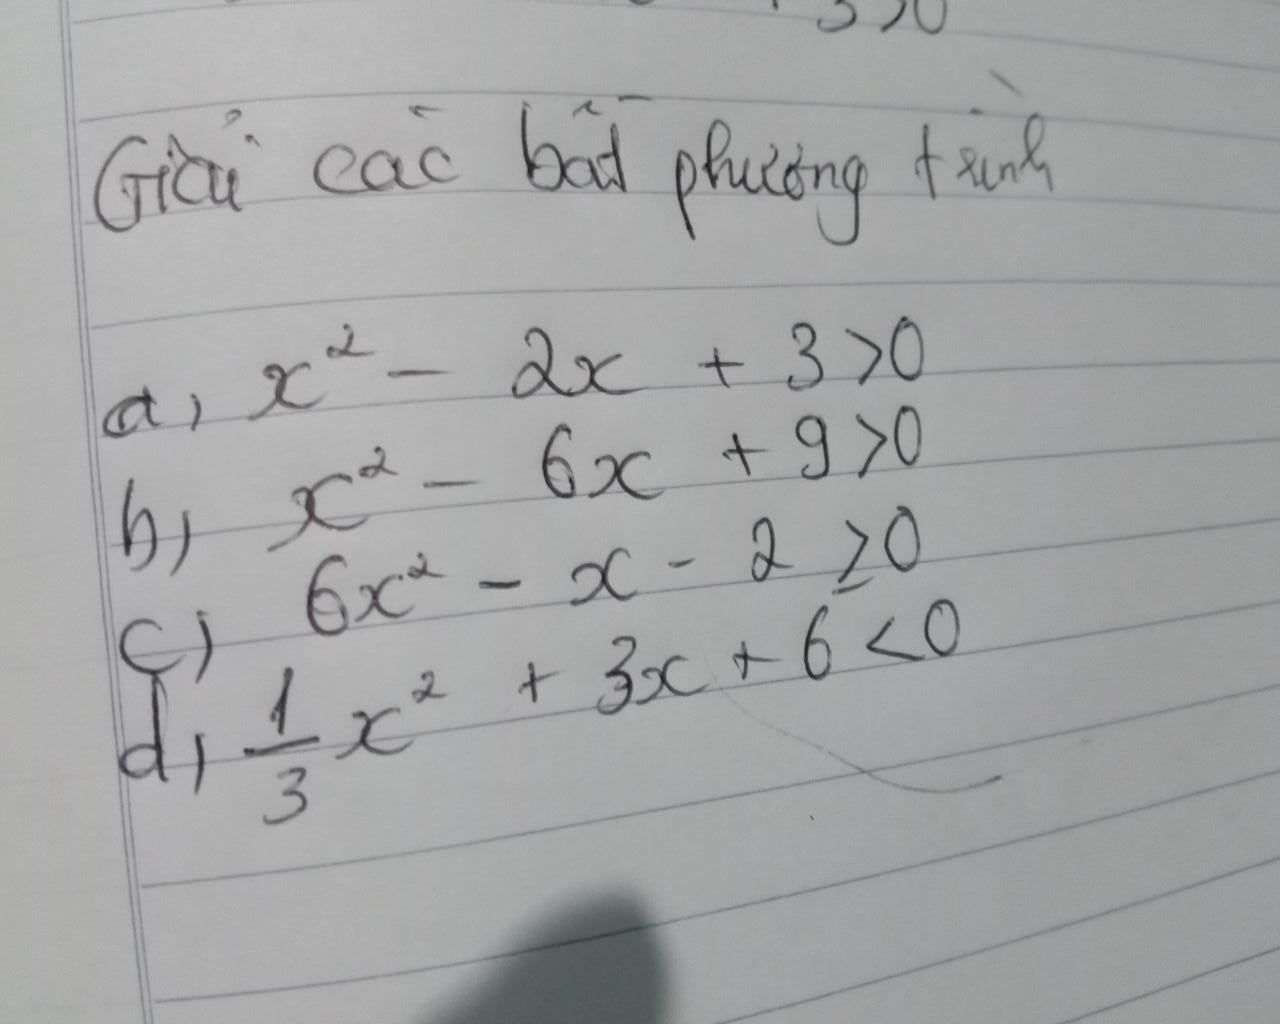 3>0
Giải các bất phương trình
a, x² - 2x + 3 >0
b, x² - 6x + 9 >0
c) 6x² - x - 2 ≥0
d, 1/3 x² + 3x + 6 <0